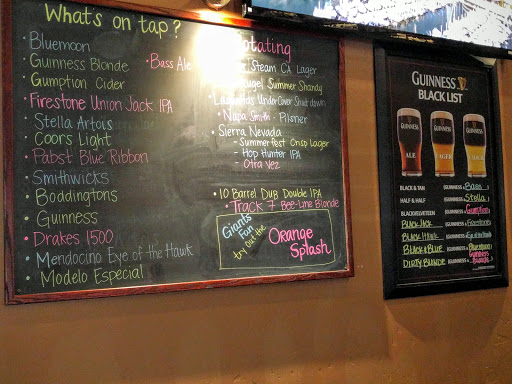 What's on tap?
• Bluemoon
• Guinness Blonde
• Bass Ale
• Gumption Cider
• Firestone Union Jack IPA
• Stella Artois
• Coors Light
• Pabst Blue Ribbon
• Smithwicks
• Boddingtons
• Guinness
• Drakes 1500
• Mendocino Eye of the Hawk
• Modelo Especial
Steam CA Lager
Summer Shandy
UnderCover Shutdown
• Napa Smith - Pilsner
• Sierra Nevada
- Summerfest Crisp Lager
- Hop Hunter IPA
- Otra Vez
• 10 Barrel Dub Double IPA
• Track 7 Bee-Line Blonde
Giants Fan
try out the
Orange Splash
GUINNESS
BLACK LIST
GUINNESS GUINNESS GUINNESS
ALE LAGER
BLACK & TAN (GUINNESS & Bass)
HALF & HALF (GUINNESS & Stella)
BLACK VELVETEEN (GUINNESS & Gumption)
BLACK JACK (GUINNESS & Firestone)
BLACK HAWK (GUINNESS & Eye of the Hawk)
BLACK & BLUE (GUINNESS & Bluemoon)
DIRTY BLONDE (GUINNESS & Guinness Blonde)